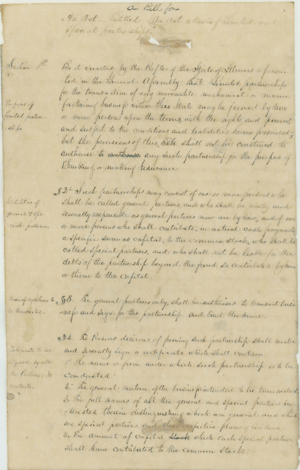 A Bill for
An Act entitled An Act
of partnerships
Section 1st
Be it enacted by the People of the State of Illinois represen
ted in the General Assembly that limited partnerships
for the transaction of any mercantile mechanical or manu
facturing business within this State may be formed by two
or more persons upon the terms with the rights and powers
and subject to the conditions and liabilities herein prescribed
but the provisions of this act shall not be construed to
authorize any such partnership for the purpose of
Banking or making Insurance
Purposes of
limited partner
ships
§2d Such partnerships may consist of one or more persons who
shall be called general partners, and who shall be jointly and
severally responsible as general partners now are by law, and of one
or more persons who shall contribute, in actual cash payments
a specific sum as capital, to the common stock, who shall be
called special partners, and who shall not be liable for the
debts of the partnership beyond the fund so contributed by him
or them to the capital.
§3. The general partners only shall be authorized to transact busi
ness and sign for the partnership and bind the same.
§4. The Persons desirous of forming such partnership shall make
and severally sign a certificate which shall contain
1 The name or firm under which such partnership is to be
conducted
2 The general nature of the business intended to be transacted
3 The full names of all the general and special partners in
terested therein distinguishing which are general and which
are special partners and their respective places of residence
4 The amount of capital which each special partner
shall have contributed to the common stock